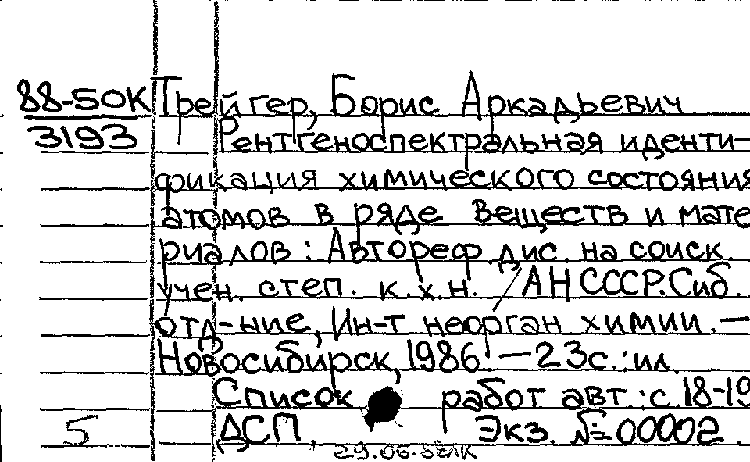 88-50К Трейгер, Борис Аркадьевич
3193 Рентгеноспектральная иденти-
фикация химического состояния
атомов в ряде веществ и мате
риалов : Автореф дис. на соиск
учен. степ. к.х.н. / АН СССР. Сиб.
отд-ние, Ин-т неорган химии. —
Новосибирск, 1986. — 23с.: ил.
Список работ авт.: с. 18-19
5 ДСП, Экз. № 00002.